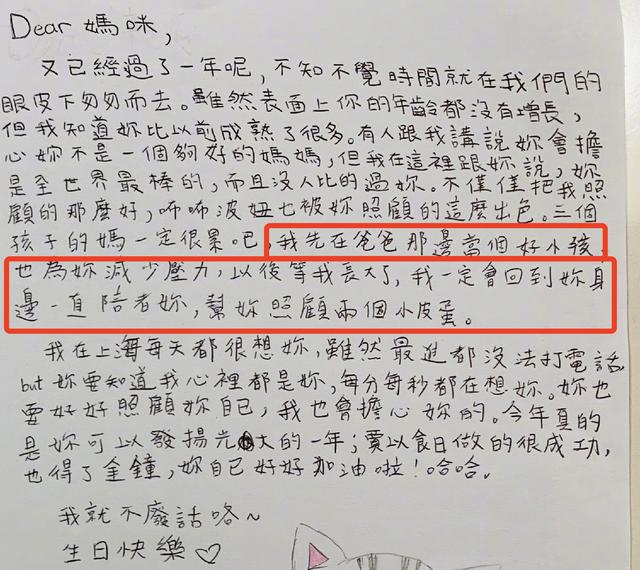 Dear 媽咪,
又已經過了一年呢，不知不覺時間就在我們的
眼皮下匆匆而去。雖然表面上你的年齡都沒有增長，
但我知道妳比以前成熟了很多。有人跟我講說妳會擔
心妳不是一個夠好的媽媽，但我在這裡跟妳說，妳
是全世界最棒的，而且沒人比的過妳。不僅僅把我照
顧的那麼好，咘咘波妞也被妳照顧的這麼出色。三個
孩子的媽一定很累吧，我先在爸爸那邊當個好小孩，
也為妳減少壓力，以後等我長大了，我一定會回到妳身
邊一直陪者妳，幫妳照顧兩個小皮蛋。
我在上海每天都很想妳，雖然最進都沒法打電話
but 妳要知道我心裡都是妳，每分每秒都在想妳。妳也
要好好照顧妳自己，我也會擔心妳的。今年真的
是妳可以發揚光大的一年；賈以食日做的很成功，
也得了金鐘，妳自己好好加油啦！哈哈。
我就不廢話咯~
生日快樂♡